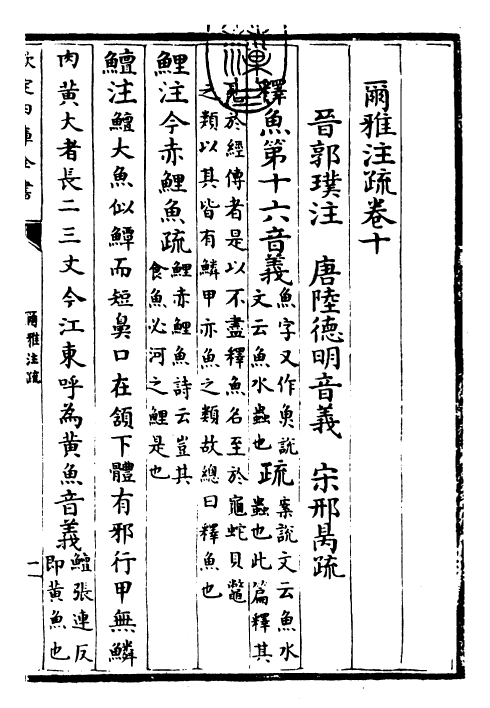 爾雅注疏卷十
晉郭璞注 唐陸德明音義 宋邢昺疏
釋魚第十六音義
魚字又作𩵋說
文云魚水蟲也
疏
案說文云魚水
蟲也此篇釋其
於經傳者是以不盡釋魚名至於龜蛇貝鼈
之類以其皆有鱗甲亦魚之類故總曰釋魚也
鯉注今赤鯉魚疏
鯉赤鯉魚詩云豈其
食魚必河之鯉是也
鱣注鱣大魚似鱏而短鼻口在頷下體有邪行甲無鱗
肉黃大者長二三丈今江東呼為黃魚音義
鱣張連反
即黃魚也
欽定四庫全書
爾雅注疏
一